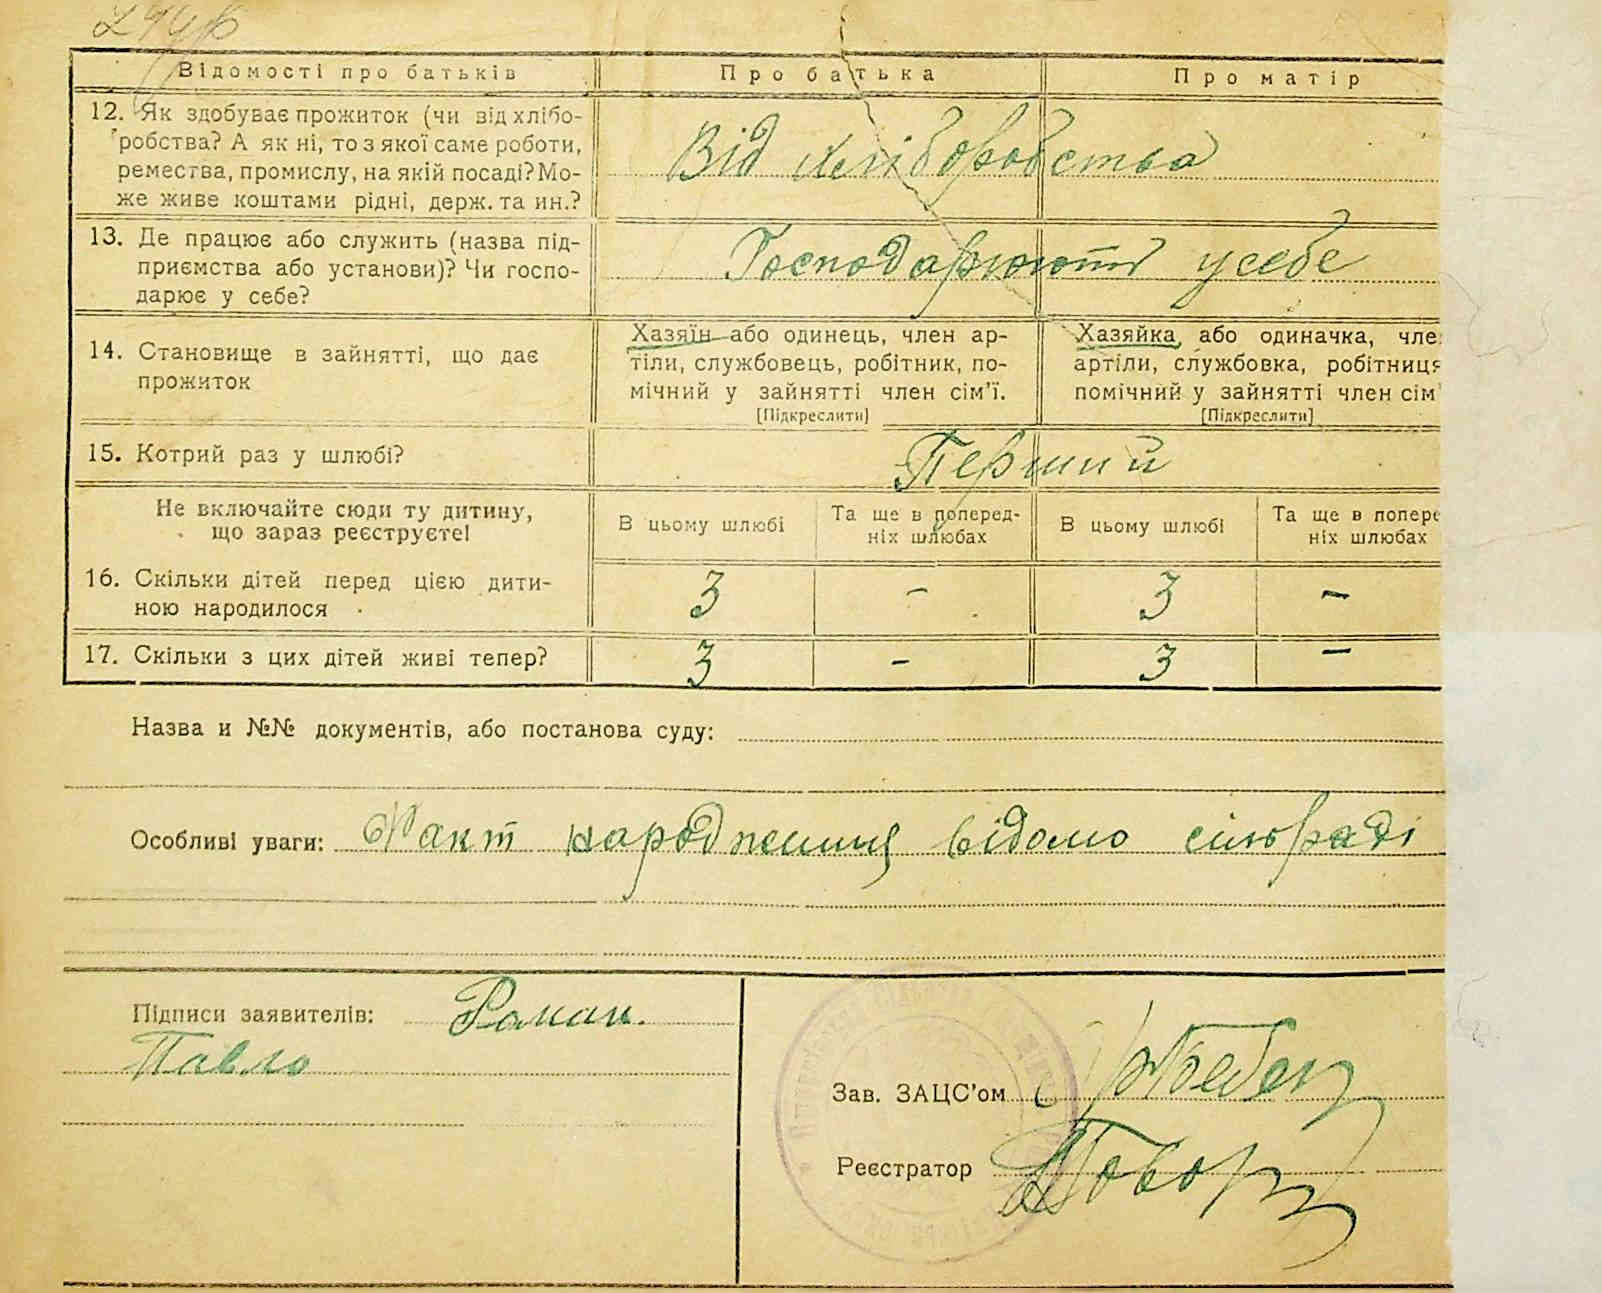 Відомості про батьків
Про батька
Про матір
12. Як здобуває прожиток (чи від хлібо-
робства? А як ні, то з якої саме роботи,
ремества, промислу, на якій посаді? Мо-
же живе коштами рідні, держ. та ин.?
Від хліборобства
13. Де працює або служить (назва під-
приємства або установи)? Чи госпо-
дарює у себе?
Господарюють у себе
14. Становище в зайнятті, що дає
прожиток
Хазяїн або одинець, член ар-
тіли, службовець, робітник, по-
мічний у зайнятті член сім'ї.
[Підкреслити]
Хазяйка, або одиначка, чле
артіли, службовка, робітниця
помічний у зайнятті член сім'
[Підкреслити]
15. Котрий раз у шлюбі?
Перший
Не включайте сюди ту дитину,
що зараз реєструєте!
В цьому шлюбі
Та ще в поперед-
ніх шлюбах
В цьому шлюбі
Та ще в попере
ніх шлюбах
16. Скільки дітей перед цією дити-
ною народилося
3 - 3 -
17. Скільки з цих дітей живі тепер?
3 - 3 -
Назва и №№ документів, або постанова суду:
Особливі уваги: Факт народження відомо сільраді
Підписи заявителів: Роман.
Павло
Зав. ЗАЦС'ом
Реєстратор